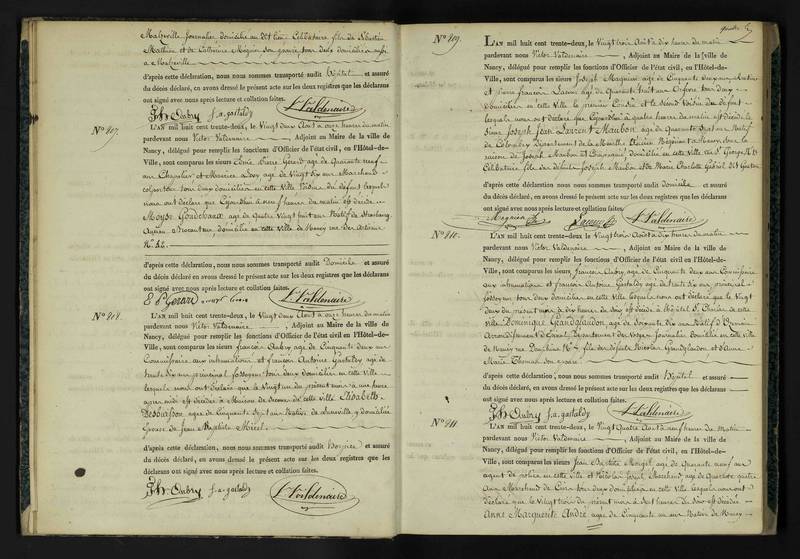 Malzeville journalier domicilié au dit lieu Célibataire fils de Sébastien
Mathieu et de Catherine Mégnin son épouse, tous deux domiciliés
à Malzeville
d'après cette déclaration, nous nous sommes transporté audit hôpital et assuré
du décès déclaré, en avons dressé le présent acte sur les deux registres que les déclarans
ont signé avec nous après lecture et collation faites.
Fs Aubry f. a. gastaldy V. Valdenaire
N° 807.
L'AN mil huit cent trente-deux, le Vingt deux Août à onze heures du matin
pardevant nous Victor Valdenaire, Adjoint au Maire de la Ville de
Nancy, délégué pour remplir les fonctions d'Officier de l'état civil, en l'Hôtel-de-
Ville, sont comparus les sieurs Pierre Gérard âgé de Quarante neuf
ans Chapelier et Maurice Levy âgé de Vingt six ans Marchand
colporteur tous deux domiciliés en cette Ville Voisins du défunt lesquels
nous ont déclaré que Cejourd'hui à neuf heures du matin est décédé
Moyse Goudchaux âgé de Quatre Vingt huit ans Natif de Strasbourg
Ancien Brocanteur, domicilié en cette Ville de Nancy rue des Artisans
N° 12.
d'après cette déclaration, nous nous sommes transporté audit Domicile et assuré
du décès déclaré en avons dressé le présent acte sur les deux registres que les déclarans
ont signé avec nous après lecture et collation faites.
Gérard V. Valdenaire
N° 808.
L'AN mil huit cent trente-deux, le Vingt deux Août à onze heures du matin
pardevant nous Victor Valdenaire, Adjoint au Maire de la Ville de
Nancy, délégué pour remplir les fonctions d'Officier de l'état civil, en l'Hôtel-de-
Ville, sont comparus les sieurs François Aubry âgé de Cinquante deux ans
Commissaire aux inhumations et françois Antoine Gastaldy âgé de
trente six ans principal fossoyeur tous deux domiciliés en cette Ville
lesquels nous ont déclaré que le Vingt un du présent mois à une heure
après midi est décédée à Maison de Secours de cette ville Elisabeth
Desbasson âgée de Cinquante Sept ans Native de Lunéville y domiciliée
Epouse de Jean Baptiste Morel.
d'après cette déclaration, nous nous sommes transporté audit Hospice et assuré
du décès déclaré, en avons dressé le présent acte sur les deux registres que les
déclarans ont signé avec nous après lecture et collation faites.
Fs Aubry f. a. gastaldy V. Valdenaire
N° 809.
L'AN mil huit cent trente-deux, le Vingt trois Août à dix heures du matin
pardevant nous Victor Valdenaire, Adjoint au Maire de la Ville de
Nancy, délégué pour remplir les fonctions d'Officier de l'état civil, en l'Hôtel-de-
Ville, sont comparus les sieurs Joseph Magnien âgé de Cinquante deux ans
et pierre françois Lacour âgé de Quarante huit ans Orfèvre tous deux
domiciliés en cette Ville le premier Cousin et le second Voisin du défunt
lesquels nous ont déclaré que Cejourd'hui à quatre heures du matin est décédé le
sieur Joseph Jean Laurent Maubon âgé de Quarante sept ans Natif
de Colombey Département de la Moselle Ancien Négociant à Nancy, sous la
raison de Joseph Maubon et Compagnie, domicilié en cette Ville rue St George
Célibataire fils des défunts Joseph Maubon et de Marie Charlotte Gabriel
d'après cette déclaration nous nous sommes transporté audit domicile et assuré
du décès déclaré, en avons dressé le présent acte sur les deux registres que les déclarans
ont signé avec nous après lecture et collation faites.
Magnien Lacour V. Valdenaire
N° 810.
L'AN mil huit cent trente-deux, le Vingt trois Août à dix heures du matin
pardevant nous Victor Valdenaire, Adjoint au Maire de la Ville de
Nancy, délégué pour remplir les fonctions d'Officier de l'état civil, en l'Hôtel-de-
Ville, sont comparus les sieurs françois Aubry, âgé de Cinquante deux ans Commissaire
aux inhumations et françois Antoine Gastaldy âgé de trente six ans principal
fossoyeur tous deux domiciliés en cette Ville lesquels nous ont déclaré que le Vingt
deux du présent mois à dix heures du soir est décédé à l'hôpital St Charles de cette
ville Dominique Grandjeandon âgé de soixante dix ans Natif d'
Arrondissement d'Epinal Département des Vosges Journalier domicilié en cette Ville
de Nancy rue fils des défunts Nicolas Grandjeandon et d'Anne
Marie Thomas son épouse
d'après cette déclaration, nous nous sommes transporté audit hôpital et assuré
du décès déclaré, en avons dressé le présent acte sur les deux registres que les déclarans
ont signé avec nous après lecture et collation faites.
Fs Aubry f. a. gastaldy V. Valdenaire
N° 811.
L'AN mil huit cent trente-deux, le Vingt Quatre Août à neuf heures du Matin
pardevant nous Victor Valdenaire, Adjoint au Maire de la Ville de
Nancy, délégué pour remplir les fonctions d'Officier de l'état civil, en l'Hôtel-de-
Ville, sont comparus les sieurs Jean Baptiste Mengel âgé de Quarante neuf ans
agent de police en cette ville et Nicolas Joseph Marchand, âgé de Quarante quatre
ans Marchand de Cuirs tous deux domiciliés en cette Ville lesquels nous ont
déclaré que le Vingt trois du présent mois à sept heures du Soir est décédée
Anne Marguerite André âgée de Cinquante un ans Native de Nancy